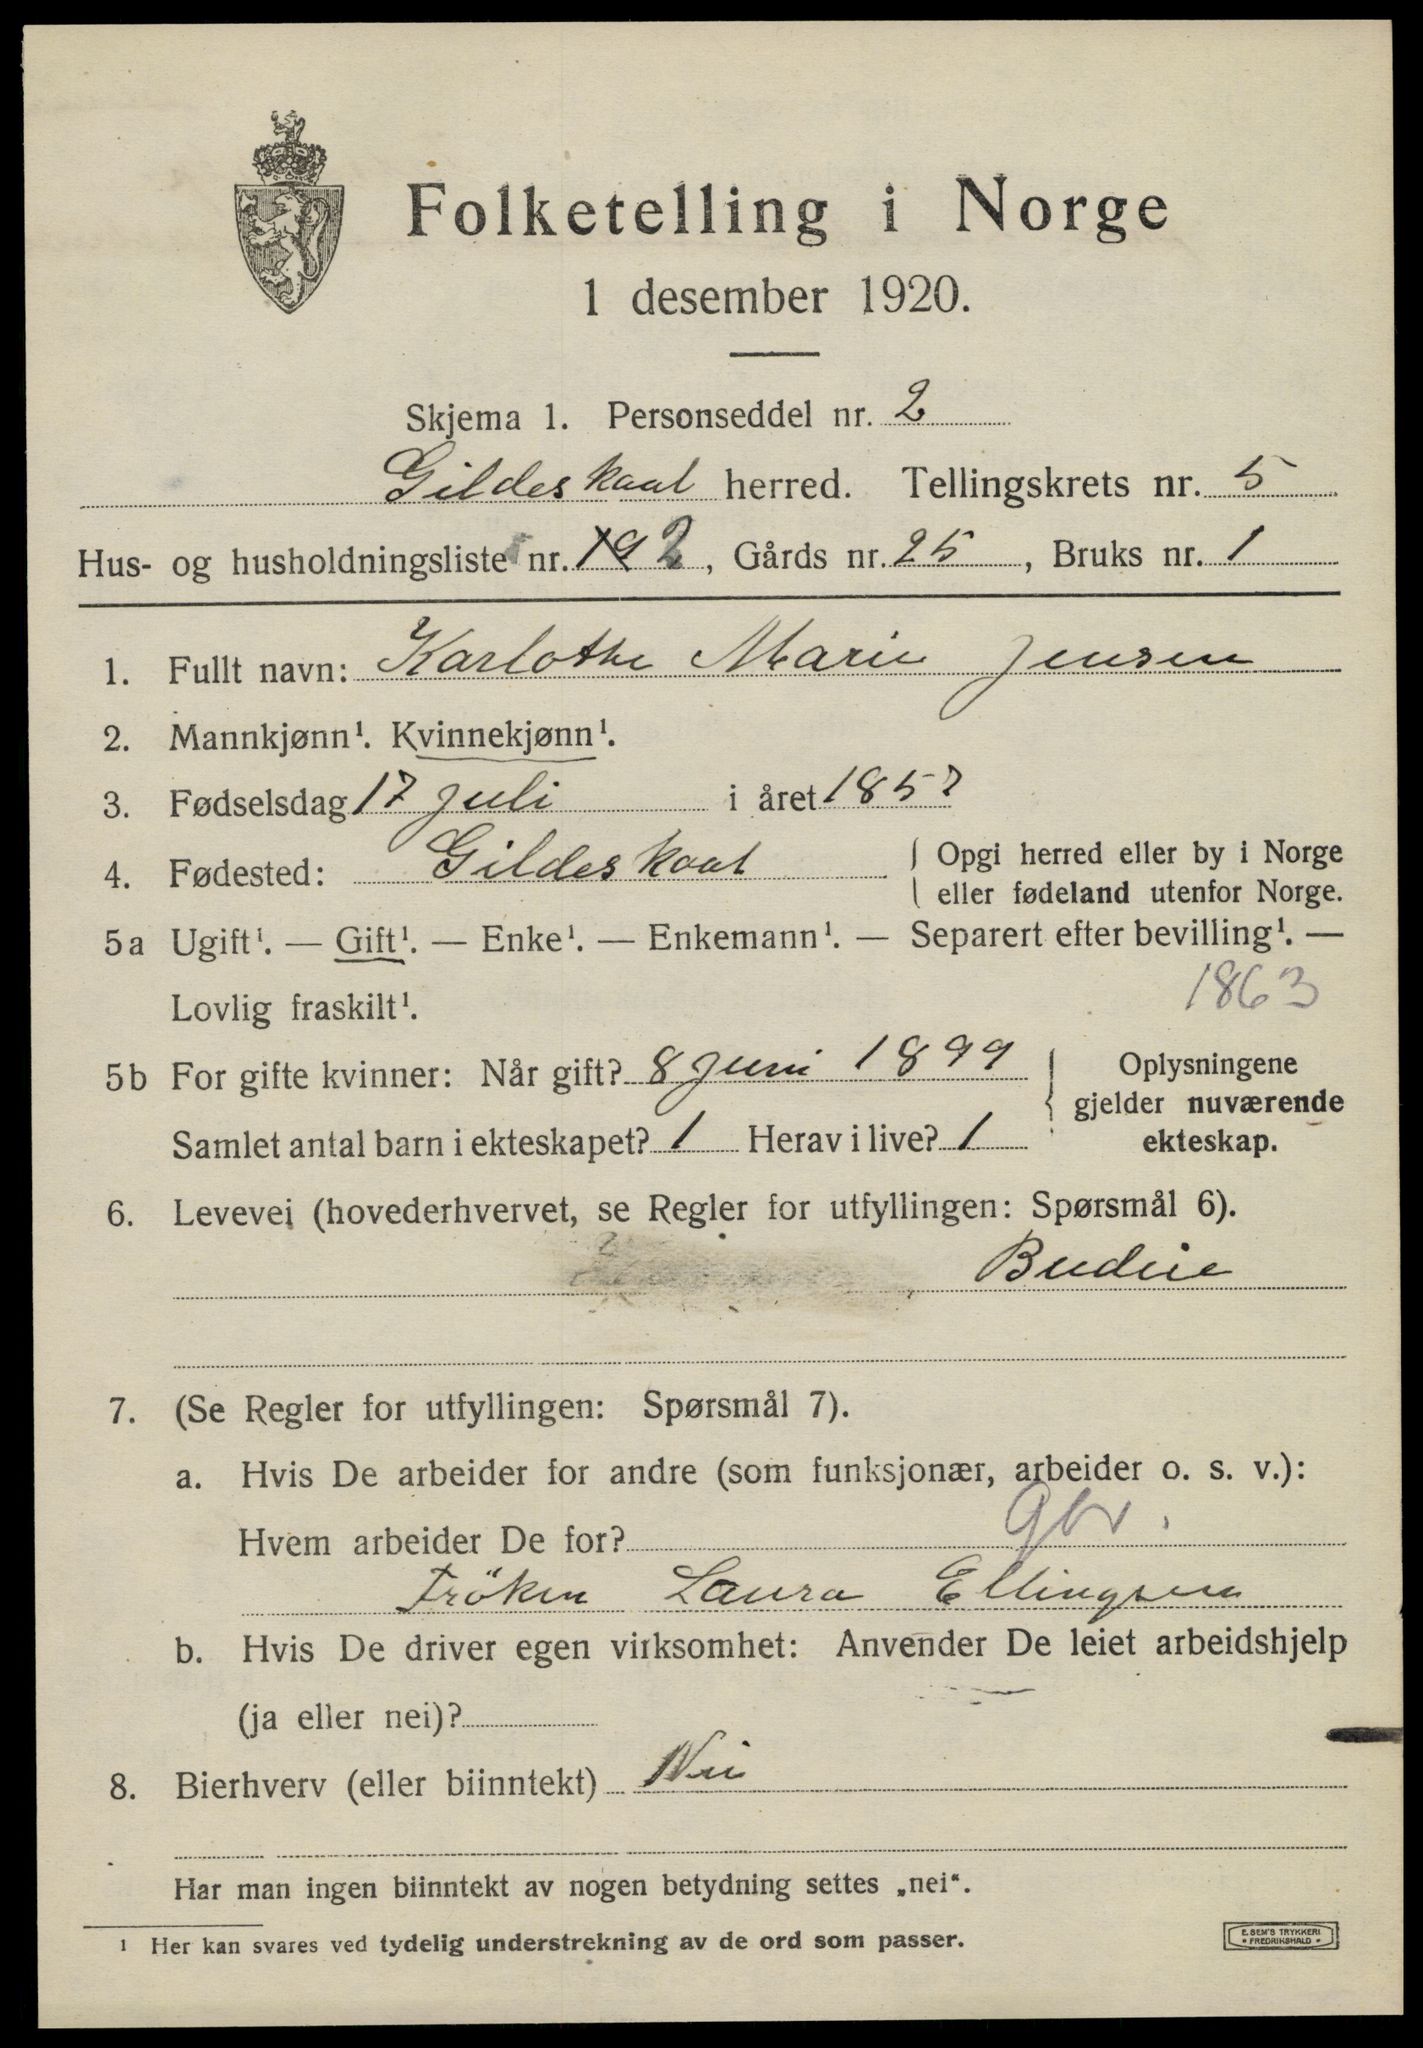 Folketelling i Norge
1 desember 1920.
Skjema 1. Personseddel nr. 2
Gildeskaal herred. Tellingskrets nr. 5
Hus- og husholdningsliste nr. 192, Gårds nr. 25, Bruks nr. 1
1. Fullt navn: Karlothe Marie Jensen
2. Mannkjønn¹. Kvinnekjønn¹.
3. Fødselsdag 17 juli i året 1857
4. Fødested: Gildeskaal { Opgi herred eller by i Norge
eller fødeland utenfor Norge.
5a Ugift¹. — Gift¹. — Enke¹. — Enkemann¹. — Separert efter bevilling¹. —
Lovlig fraskilt¹. 1863
5b For gifte kvinner: Når gift? 8 juni 1899 { Oplysningene
gjelder nuværende
Samlet antal barn i ekteskapet? 1 Herav i live? 1 ekteskap.
6. Levevei (hovederhvervet, se Regler for utfyllingen: Spørsmål 6).
Budeie
7. (Se Regler for utfyllingen: Spørsmål 7).
a. Hvis De arbeider for andre (som funksjonær, arbeider o. s. v.):
Hvem arbeider De for? Gbr.
Frøken Laura Ellingsen
b. Hvis De driver egen virksomhet: Anvender De leiet arbeidshjelp
(ja eller nei)?
8. Bierhverv (eller biinntekt) Nei
Har man ingen biinntekt av nogen betydning settes „nei“.
¹ Her kan svares ved tydelig understrekning av de ord som passer.
E. SEM'S TRYKKERI
• FREDRIKSHALD •